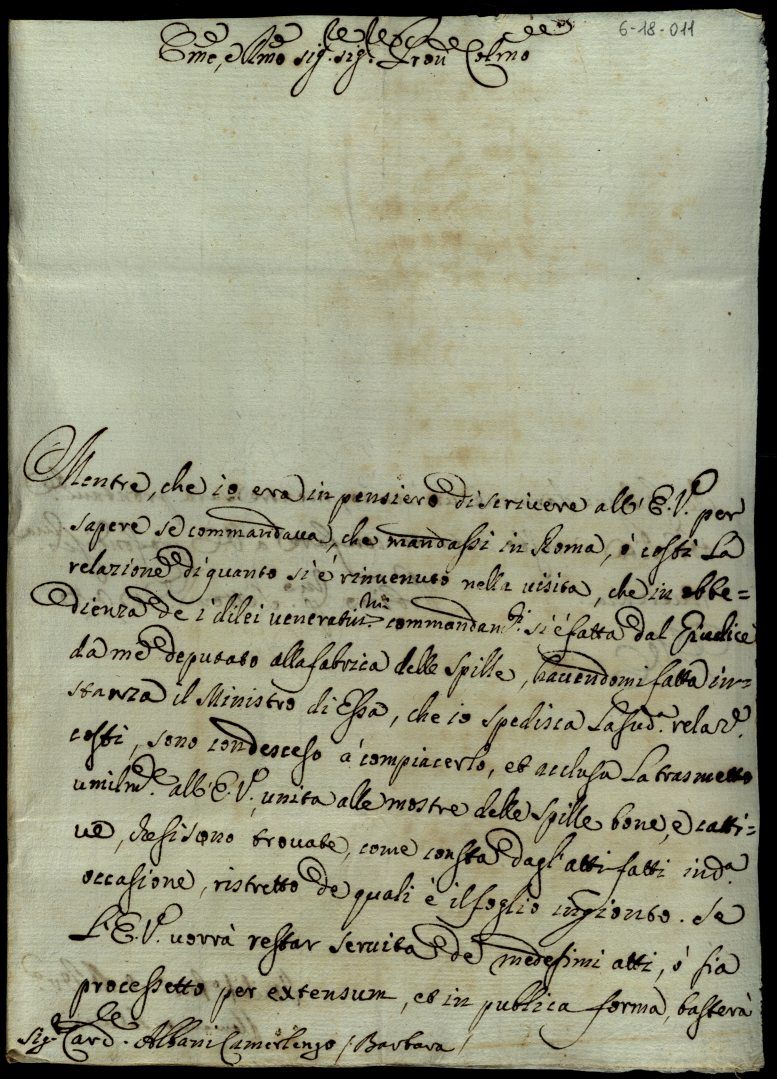 6-18-011
Em̃e, e Rm̃o Sig.re Sig.re Prõn Colm̃o
Mentre, che io era in pensiero di scrivere all'E.V. per
sapere se commandava, che mandassi in Roma, ò costì La
relazione di quanto si è rinvenuto nella visita, che in obbe=
dienza de i di lei veneratiss.mi commandam.ti si è fatta dal Giudice
da me deputato alla fabrica delle Spille, havendomi fatta in=
stanza il Ministro di Essa, che io spedisca La sud.a relaz.e
costì, sono condesceso à compiacerlo, et acclusa La trasmetto
umilm.e all'E.V., unita alle mostre delle Spille bone, e catti=
ve, che si sono trovate, come consta dagl'atti fatti in d.a
occasione, ristretto de quali è il foglio ingionto. Se
L'E.V. vorrà restar servita de medesimi atti, ò sia
processetto per extensum, et in publica forma, basterà
Sig.r Card.le Albani Camerlengo / Barbara /